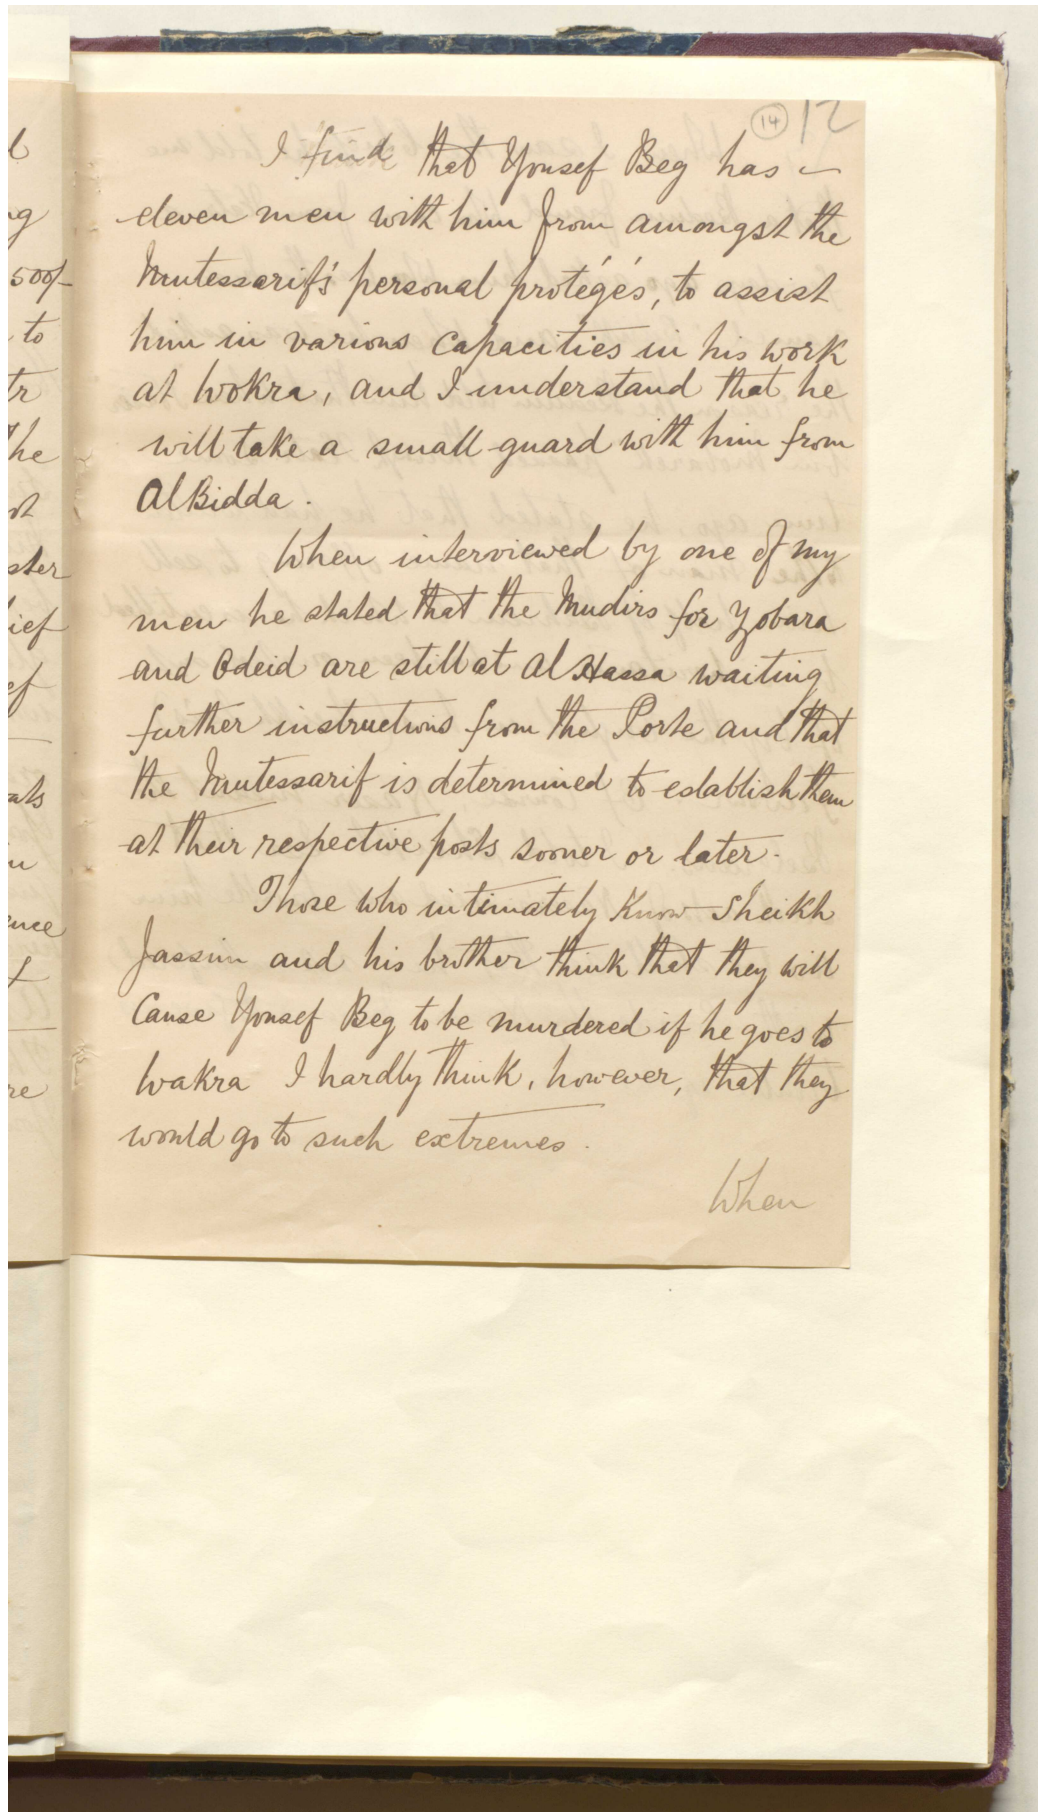 14 12
I find that Yousef Beg has
eleven men with him from amongst the
Mutessarif's personal protégés, to assist
him in various capacities in his work
at Wokra, and I understand that he
will take a small guard with him from
Al Bidda.
When interviewed by one of my
men he stated that the Mudirs for Zobara
and Odeid are still at Al Hassa waiting
further instructions from the Porte and that
the Mutessarif is determined to establish them
at their respective posts sooner or later.
Those who intimately know Sheikh
Jassim and his brother think that they will
cause Yousef Beg to be murdered if he goes to
Wakra I hardly think, however, that they
would go to such extremes.
When
l
ng
500/-
to
tr
The
ot
ster
ief
ef
ats
in
ence
re